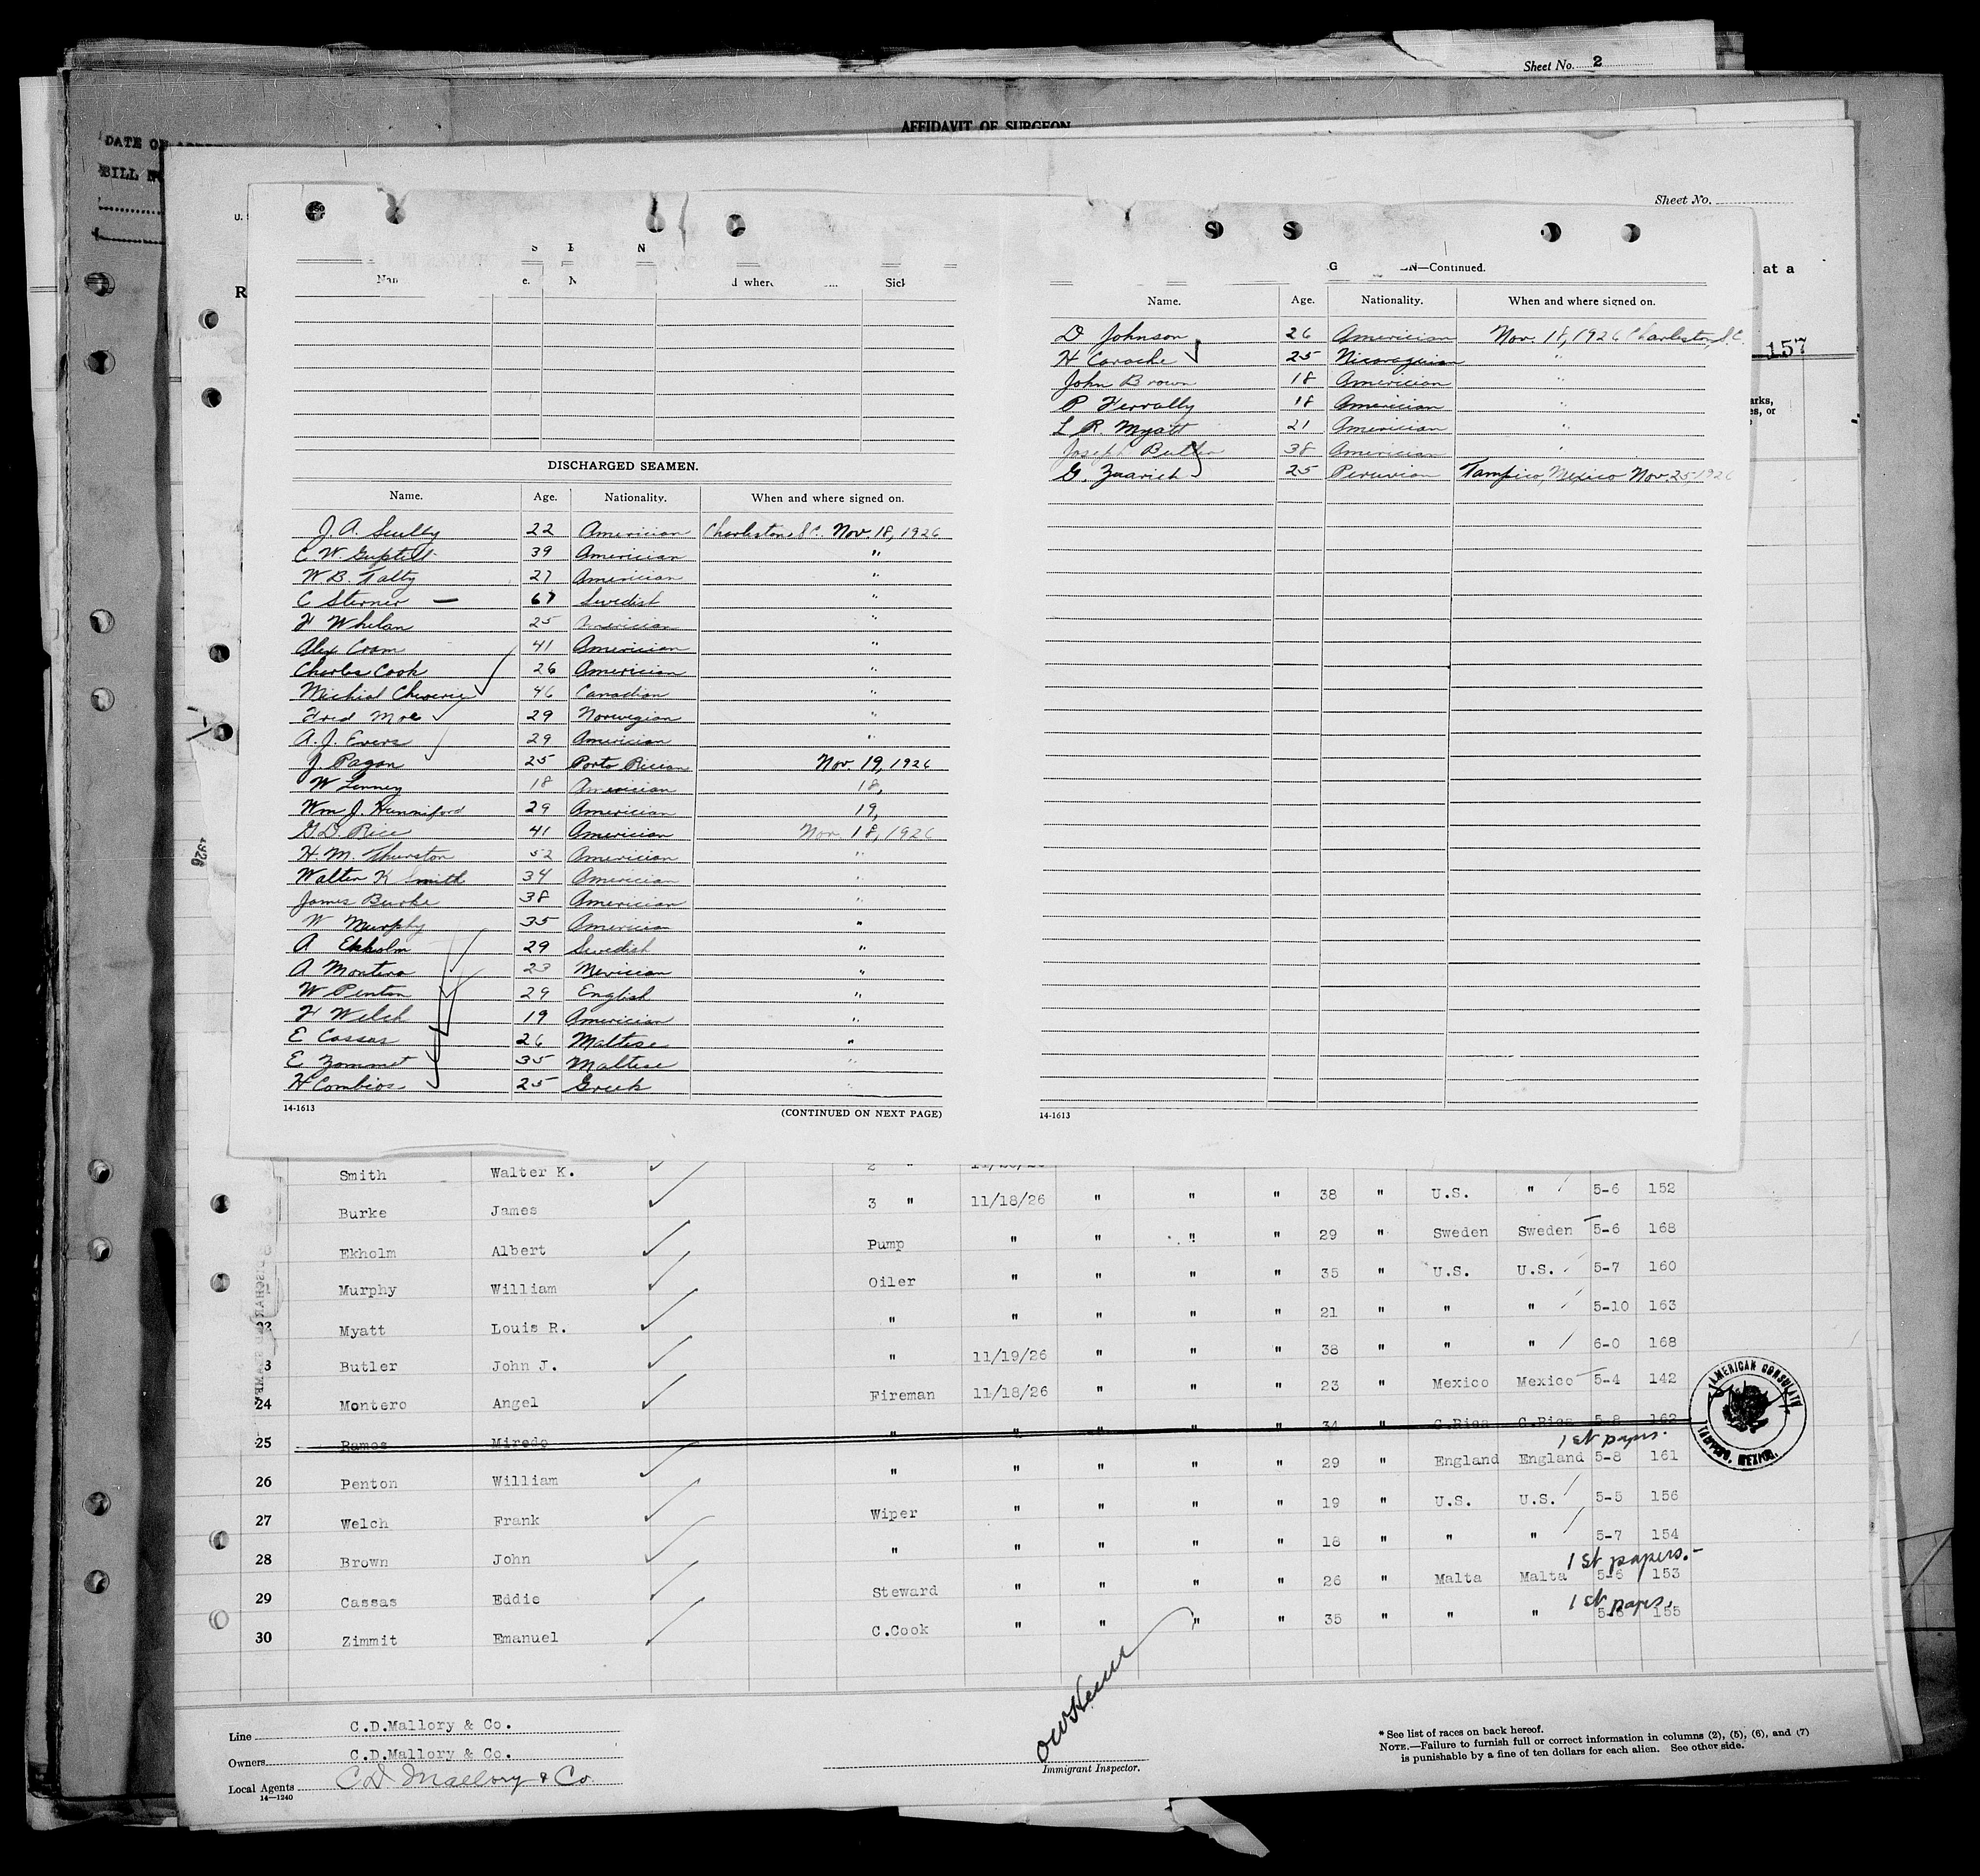 Sheet No. 2
AFFIDAVIT OF SURGEON
DATE OF
BILL
U. S
Sheet No.
R
at a
157
arks,
es, or
Sick
Name. Age. Nationality. When and where signed on.
N—Continued.
D Johnson 26 Americian Nov. 18, 1926 Charleston, S.C.
H Carache 25 Nicaraguian "
John Brown 18 Americian "
P 18 Americian "
L R. Myatt 21 Americian "
Joseph Butler 38 Americian "
G. Zuarich 25 Peruvian Tampico, Mexico Nov. 25, 1926
14-1613
DISCHARGED SEAMEN.
Name. Age. Nationality. When and where signed on.
J. A. Scully 22 Americian Charleston, S.C. Nov. 18, 1926
C W. Guptill 39 Americian "
W B. Talty 27 Americian "
C Sterner — 67 Swedish "
F Whelan 25 Americian "
Alex Coam 41 Americian "
Charles Cook 26 Americian "
Michial Cheverie 46 Canadian "
Fred Moe 29 Norwegian "
A. J. Evers 29 Americian "
J. Pagan 25 Porto Rician Nov. 19, 1926
W Lenney 18 Americian 18,
Wm J. Hunniford 29 Americian 19,
G. D. Rice 41 Americian Nov. 18, 1926
H. M. Thurston 52 Americian "
Walter K Smith 34 Americian "
James Burke 38 Americian "
W Murphy 35 Americian "
A Ekholm 29 Swedish "
A Montero 23 Mexican "
W Penton 29 English "
F Welch 19 Americian "
E Cassas 26 Maltese "
E Zammet 35 Maltese "
H Combios 25 Greek
14-1613 (CONTINUED ON NEXT PAGE)
1926
Smith Walter K. 2 "
Burke James 3 " 11/18/26 " " " 38 " U.S. " 5-6 152
Ekholm Albert Pump " " " " 29 " Sweden Sweden 5-6 168
Murphy William Oiler " " " " 35 " U.S. U.S. 5-7 160
22 Myatt Louis R. " " " " " 21 " " " 5-10 163
3 Butler John J. " 11/19/26 " " " 38 " " " 6-0 168
24 Montero Angel Fireman 11/18/26 " " " 23 " Mexico Mexico 5-4 142
25 Ramos Miredo " " " " " 34 " C.Rica C.Rica 5-8 162
1st papers.
26 Penton William " " " " " 29 " England England 5-8 161
27 Welch Frank Wiper " " " " 19 " U.S. U.S. 5-5 156
28 Brown John " " " " " 18 " " " 5-7 154
1st papers.-
29 Cassas Eddie Steward " " " " 26 " Malta Malta 5-6 153
1st papers.
30 Zimmit Emanuel C.Cook " " " " 35 " " " 5-6 155
AMERICAN CONSULATE
TAMPICO, MEXICO.
Line C.D.Mallory & Co.
Owners C.D.Mallory & Co.
Local Agents C D Mallory & Co.
14—1240
Immigrant Inspector.
* See list of races on back hereof.
NOTE.—Failure to furnish full or correct information in columns (2), (5), (6), and (7)
is punishable by a fine of ten dollars for each alien. See other side.